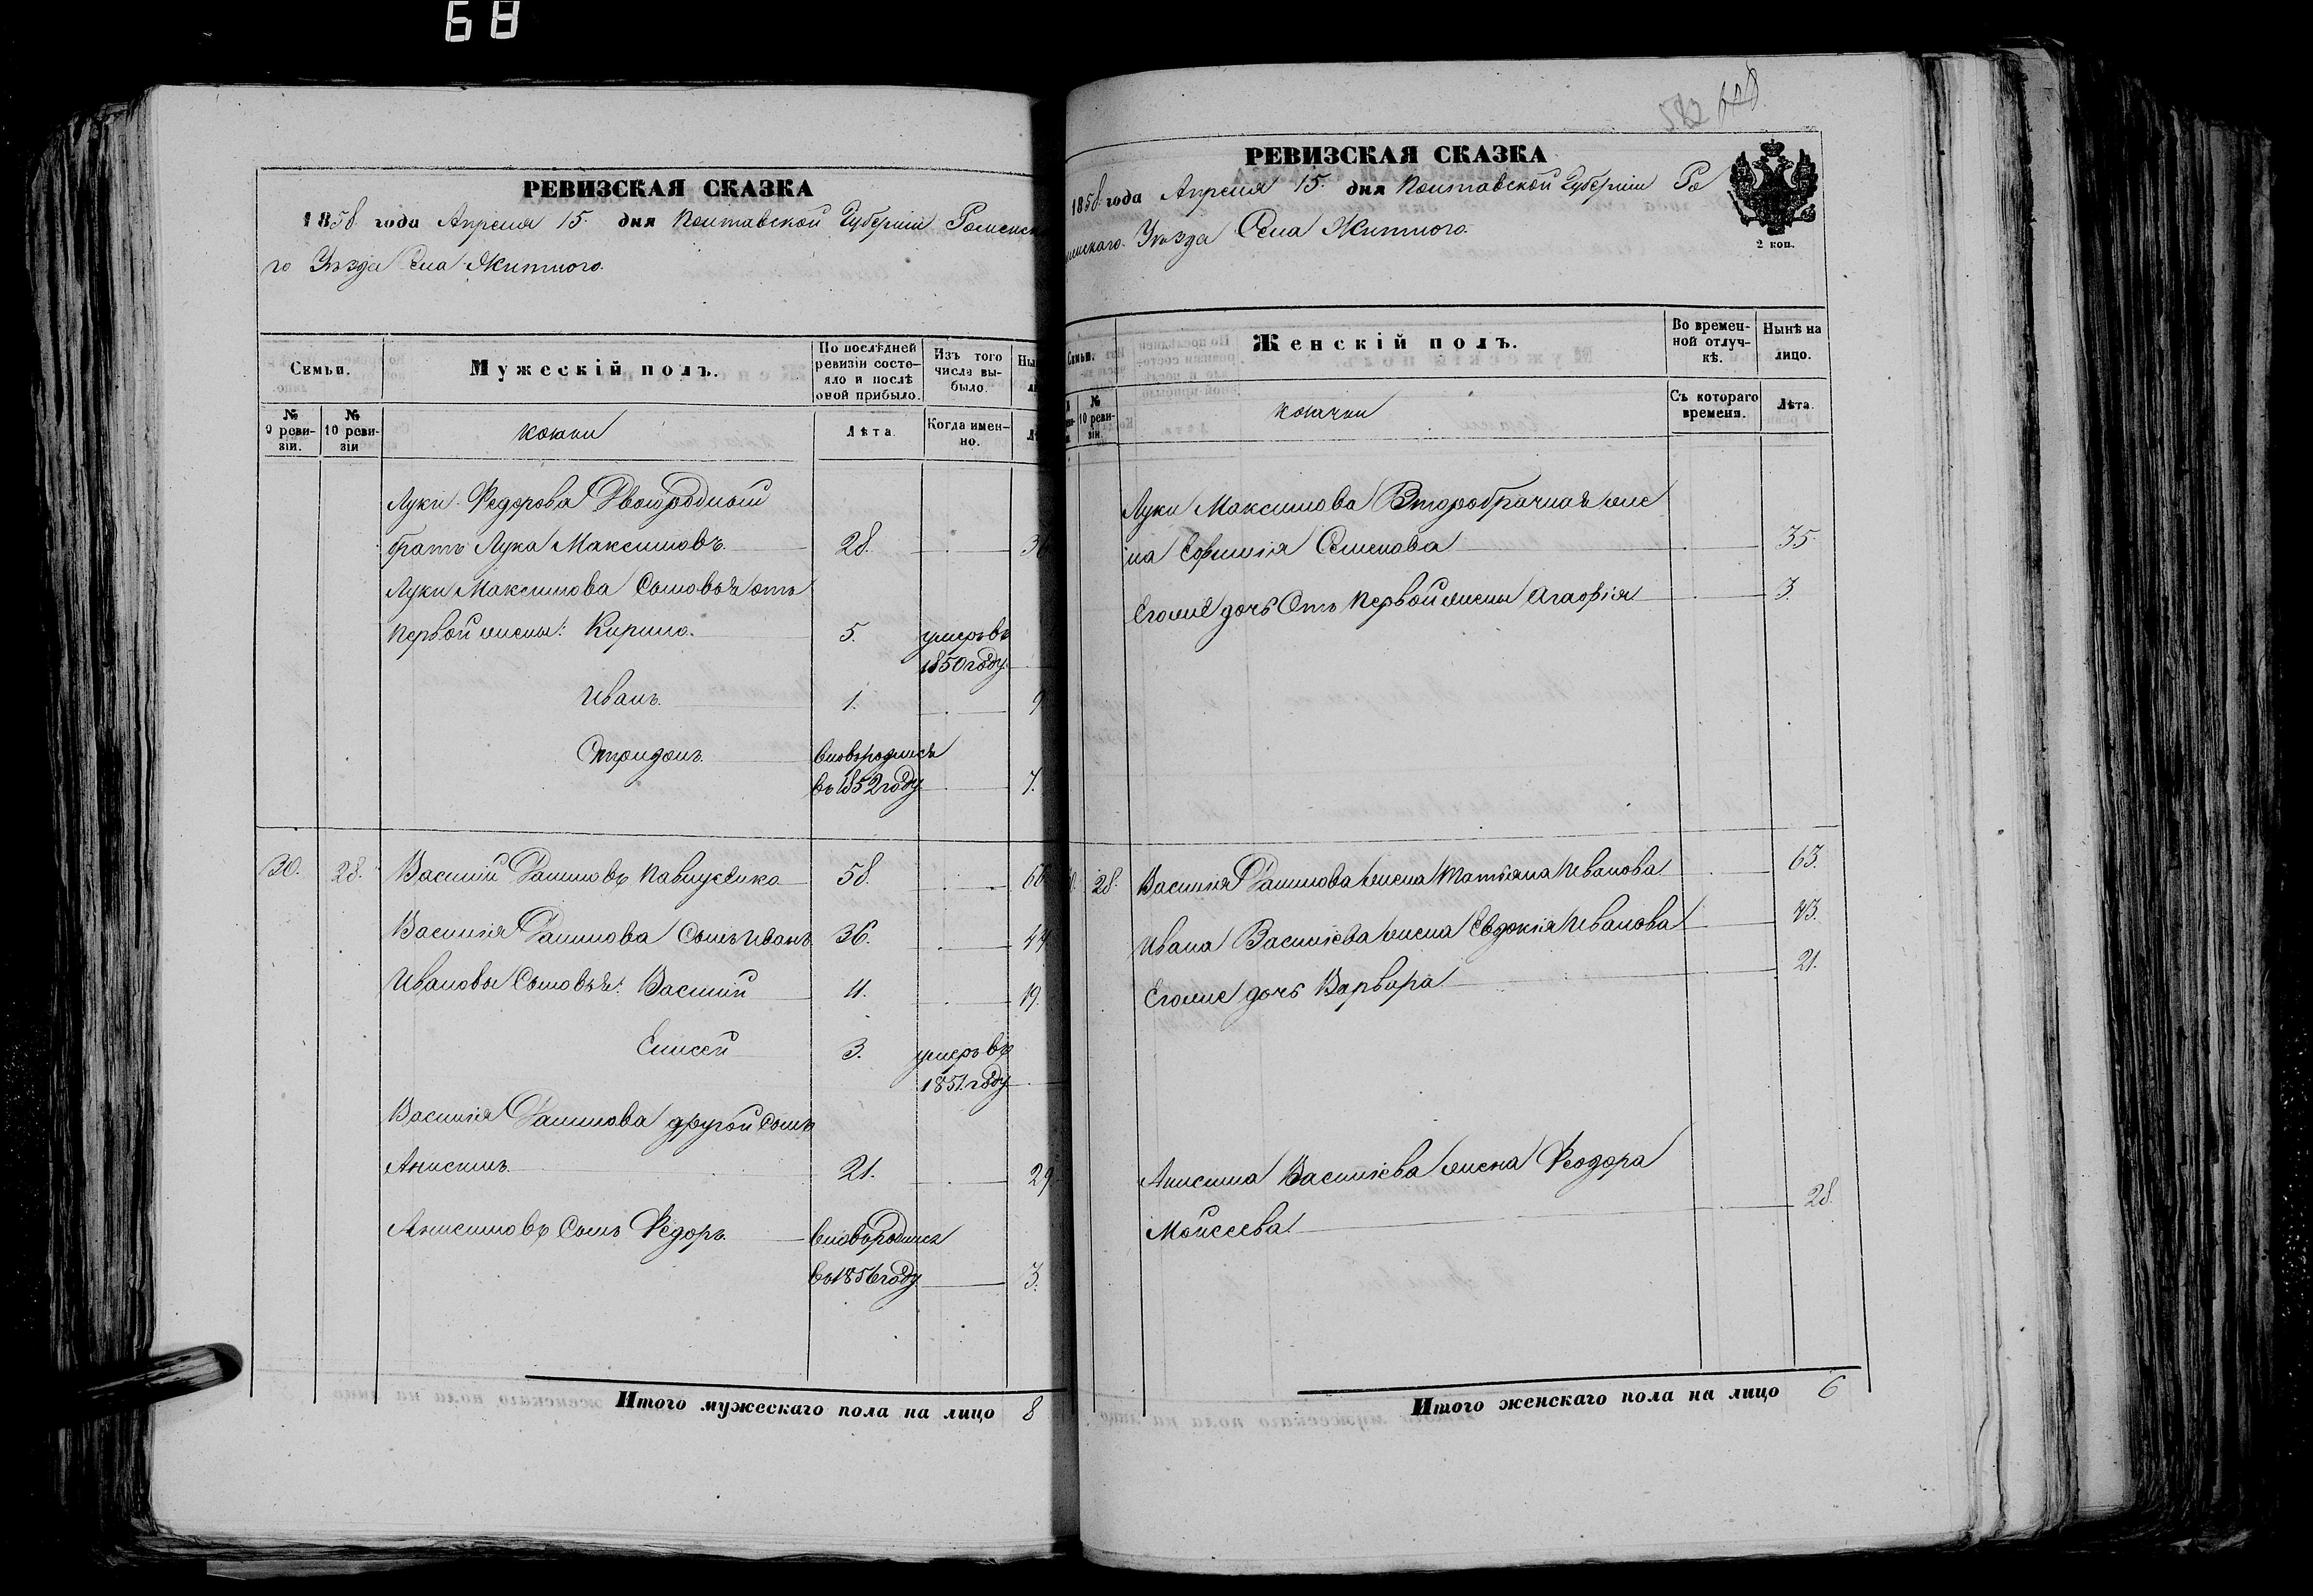 68
РЕВИЗСКАЯ СКАЗКА
1858 года Апреля 15. дня Полтавской Губернии Роменска
го Уѣзда Села Житного.
Семьи.
Мужескій полъ.
По послѣдней ревизіи состояло и послѣ оной прибыло.
Изъ того числа выбыло.
№ 9 ревизіи.
№ 10 ревизіи
козаки
Лѣта.
Когда именно.
Луки Федорова Двоюродный
братъ Лука Максимовъ. 28.
Луки Максимова Сыновья отъ
первой жены: Кирило. 5. умеръ въ
1850 году.
Иванъ. 1. 9
Спиридонъ. вновьродился
въ 1852 году. 7.
30. 28. Василий Даниловъ Павлусенко 58. 66
Василия Данилова Сынъ Иванъ 36. 44
Ивановы Сыновья: Василий 11. 19.
Елисей 3. умеръ въ
1851. году
Василия Данилова другой Сынъ
Анисимъ 21. 29
Анисимовъ Сынъ Федоръ. вновьродился
въ 1856 году 3.
Итого мужескаго пола на лицо 8
582
РЕВИЗСКАЯ СКАЗКА
1858 года Апреля 15. дня Полтавской Губернии Ро
менскаго. Уѣзда Села Житного.
2 коп.
Семьи.
Женскій полъ.
Во временной отлучкѣ.
Нынѣ на лицо.
№ 10 ревизіи.
козачки
Съ котораго времени.
Лѣта.
Луки Максимова Второбрачная же
на Евфимия Семенова 35.
Егоже дочь Отъ первой жены Агафія 3.
28. Василия Данилова жена Татьяна Иванова 63.
Ивана Василиева жена Евдокия Иванова 43.
Егоже дочь Варвара 21.
Анисима Василиева жена Феодора
Моисеева 28.
Итого женскаго пола на лицо 6